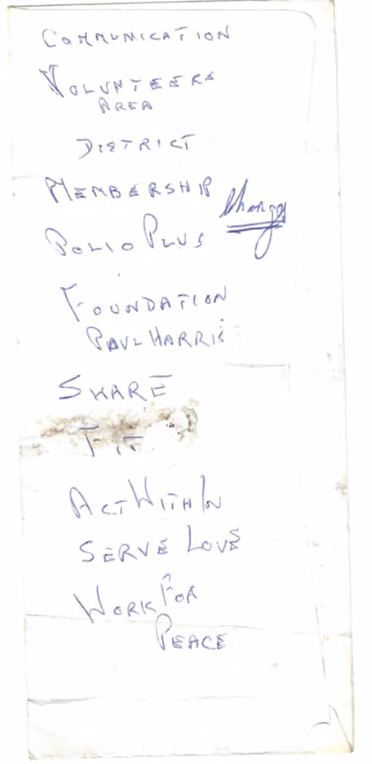 COMMUNICATION
VOLUNTEERS
AREA
DISTRICT
MEMBERSHIP
POLIO PLUS
FOUNDATION
PAUL HARRIS
SHARE
ACT WITH IN
SERVE LOVE
WORK FOR
PEACE